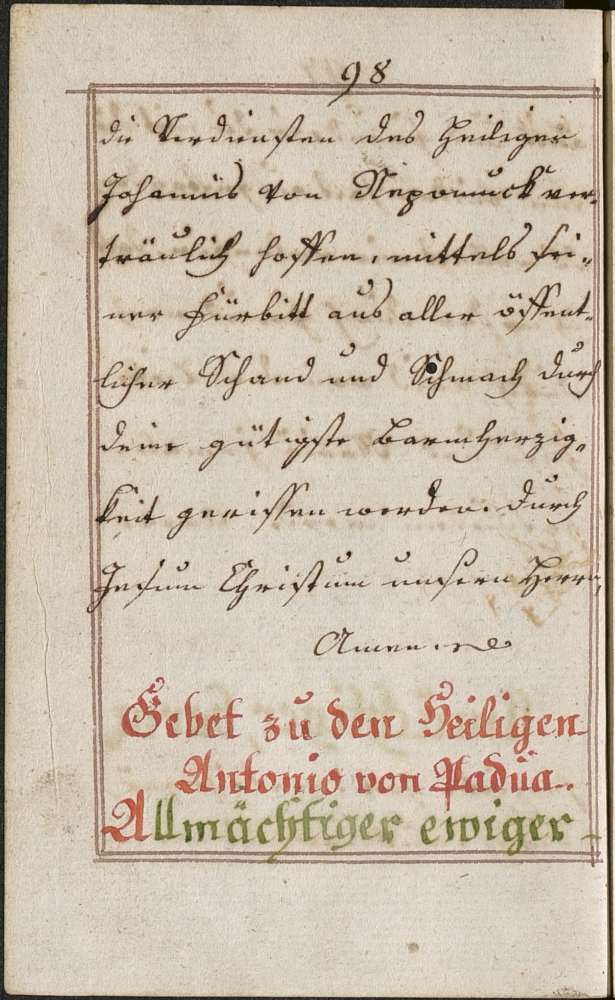 98
die Verdiensten des Heiligen
Johannis von Nepomuck ver-
träulich hoffen, mittels sei-
ner Fürbitt aus aller öffent-
licher Schand und Schmach durch
deine gütigste Barmherzig-
keit gerissen werden. Durch
Jesum Christum unsern Herrn,
Amen.
Gebet zu den Heiligen
Antonio von Padüa.
Allmächtiger ewiger